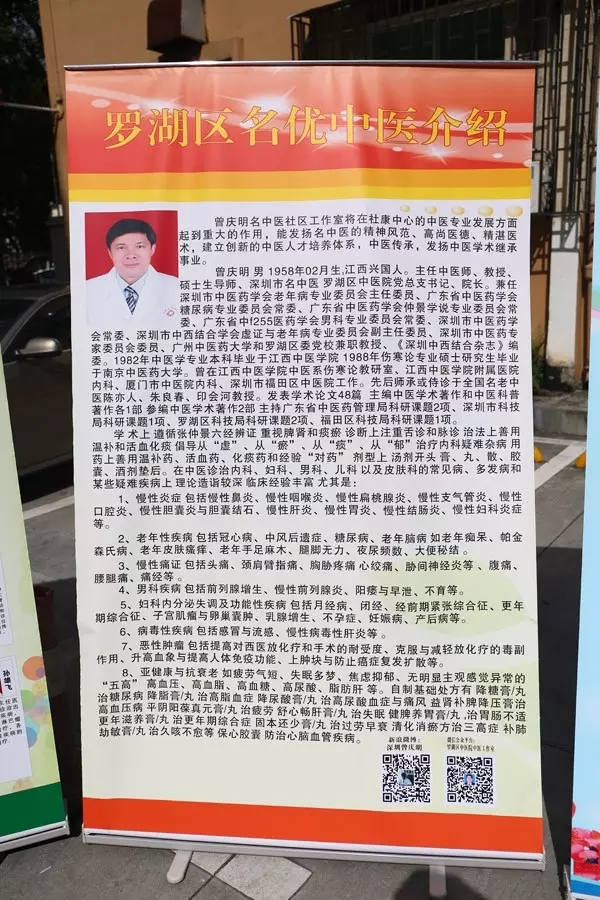 罗湖区名优中医介绍
曾庆明名中医社区工作室将在社康中心的中医专业发展方面
起到重大的作用，能发扬名中医的精神风范、高尚医德、精湛医
术，建立创新的中医人才培养体系，中医传承，发扬中医学术继承
事业。
曾庆明 男 1958年02月生,江西兴国人。主任中医师、教授、
硕士生导师、深圳市名中医 罗湖区中医院党总支书记、院长。兼任
深圳市中医药学会老年病专业委员会主任委员、广东省中医药学会
糖尿病专业委员会常委、广东省中医药学会仲景学说专业委员会常
委、广东省中f255医药学会男科专业委员会常委、深圳市中医药学
会常委、深圳市中西结合学会虚证与老年病专业委员会副主任委员、深圳市中医药专
家委员会委员、广州中医药大学和罗湖区委党校兼职教授、《深圳中西结合杂志》编
委。1982年中医学专业本科毕业于江西中医学院 1988年伤寒论专业硕士研究生毕业
于南京中医药大学。曾在江西中医学院中医系伤寒论教研室、江西中医学院附属医院
内科、厦门市中医院内科、深圳市福田区中医院工作。先后师承或侍诊于全国名老中
医陈亦人、朱良春、印会河教授。发表学术论文48篇 主编中医学术著作和中医科普
著作各1部 参编中医学术著作2部 主持广东省中医药管理局科研课题2项、深圳市科技
局科研课题1项、罗湖区科技局科研课题2项、福田区科技局科研课题1项。
学术上 遵循张仲景六经辨证 重视脾肾和痰瘀 诊断上注重舌诊和脉诊 治法上善用
温补和活血化痰 倡导从“虚”、从“瘀”、从“痰”、从“郁”治疗内科疑难杂病 用
药上善用温补药、活血药、化痰药和经验“对药” 剂型上 汤剂开头 膏、丸、散、胶
囊、酒剂垫后。在中医诊治内科、妇科、男科、儿科 以及皮肤科的常见病、多发病和
某些疑难疾病上 理论造诣较深 临床经验丰富 尤其是：
1、慢性炎症 包括慢性鼻炎、慢性咽喉炎、慢性扁桃腺炎、慢性支气管炎、慢性
口腔炎、慢性胆囊炎与胆囊结石、慢性肝炎、慢性胃炎、慢性结肠炎、慢性妇科炎症
等。
2、老年性疾病 包括冠心病、中风后遗症、糖尿病、老年脑病 如老年痴呆、帕金
森氏病、老年皮肤瘙痒、老年手足麻木、腿脚无力、夜尿频数、大便秘结 。
3、慢性痛证 包括头痛、颈肩臂指痛、胸胁疼痛 心绞痛、胁间神经炎等 、腹痛、
腰腿痛、痛经等 。
4、男科疾病 包括前列腺增生、慢性前列腺炎、阳痿与早泄、不育等。
5、妇科内分泌失调及功能性疾病 包括月经病、闭经、经前期紧张综合征、更年
期综合征、子宫肌瘤与卵巢囊肿、乳腺增生、不孕症、妊娠病、产后病等。
6、病毒性疾病 包括感冒与流感、慢性病毒性肝炎等 。
7、恶性肿瘤 包括提高对西医放化疗和手术的耐受度、克服与减轻放化疗的毒副
作用、升高血象与提高人体免疫功能、上肿块与防止癌症复发扩散等。
8、亚健康与抗衰老 如疲劳气短、失眠多梦、焦虑抑郁、无明显主观感觉异常的
“五高” 高血压、高血脂、高血糖、高尿酸、脂肪肝 等。自制基础处方有 降糖膏/丸
治糖尿病 降脂膏/丸 治高脂血症 降尿酸膏/丸 治高尿酸血症与痛风 益肾补脾降压膏治
高血压病 平阴阳葆真元膏/丸 治疲劳 舒心畅肝膏/丸 治失眠 健脾养胃膏/丸 ,治胃肠不适
更年滋养膏/丸 治更年期综合症 固本还少膏/丸 治过劳早衰 清化消瘀方治三高症 补肺
劫敏膏/丸 治久咳不愈等 保心胶囊 防治心脑血管疾病。
新浪微博：
深圳曾庆明
微信公众平台：
罗湖区中医院中医工作室
孙雄飞